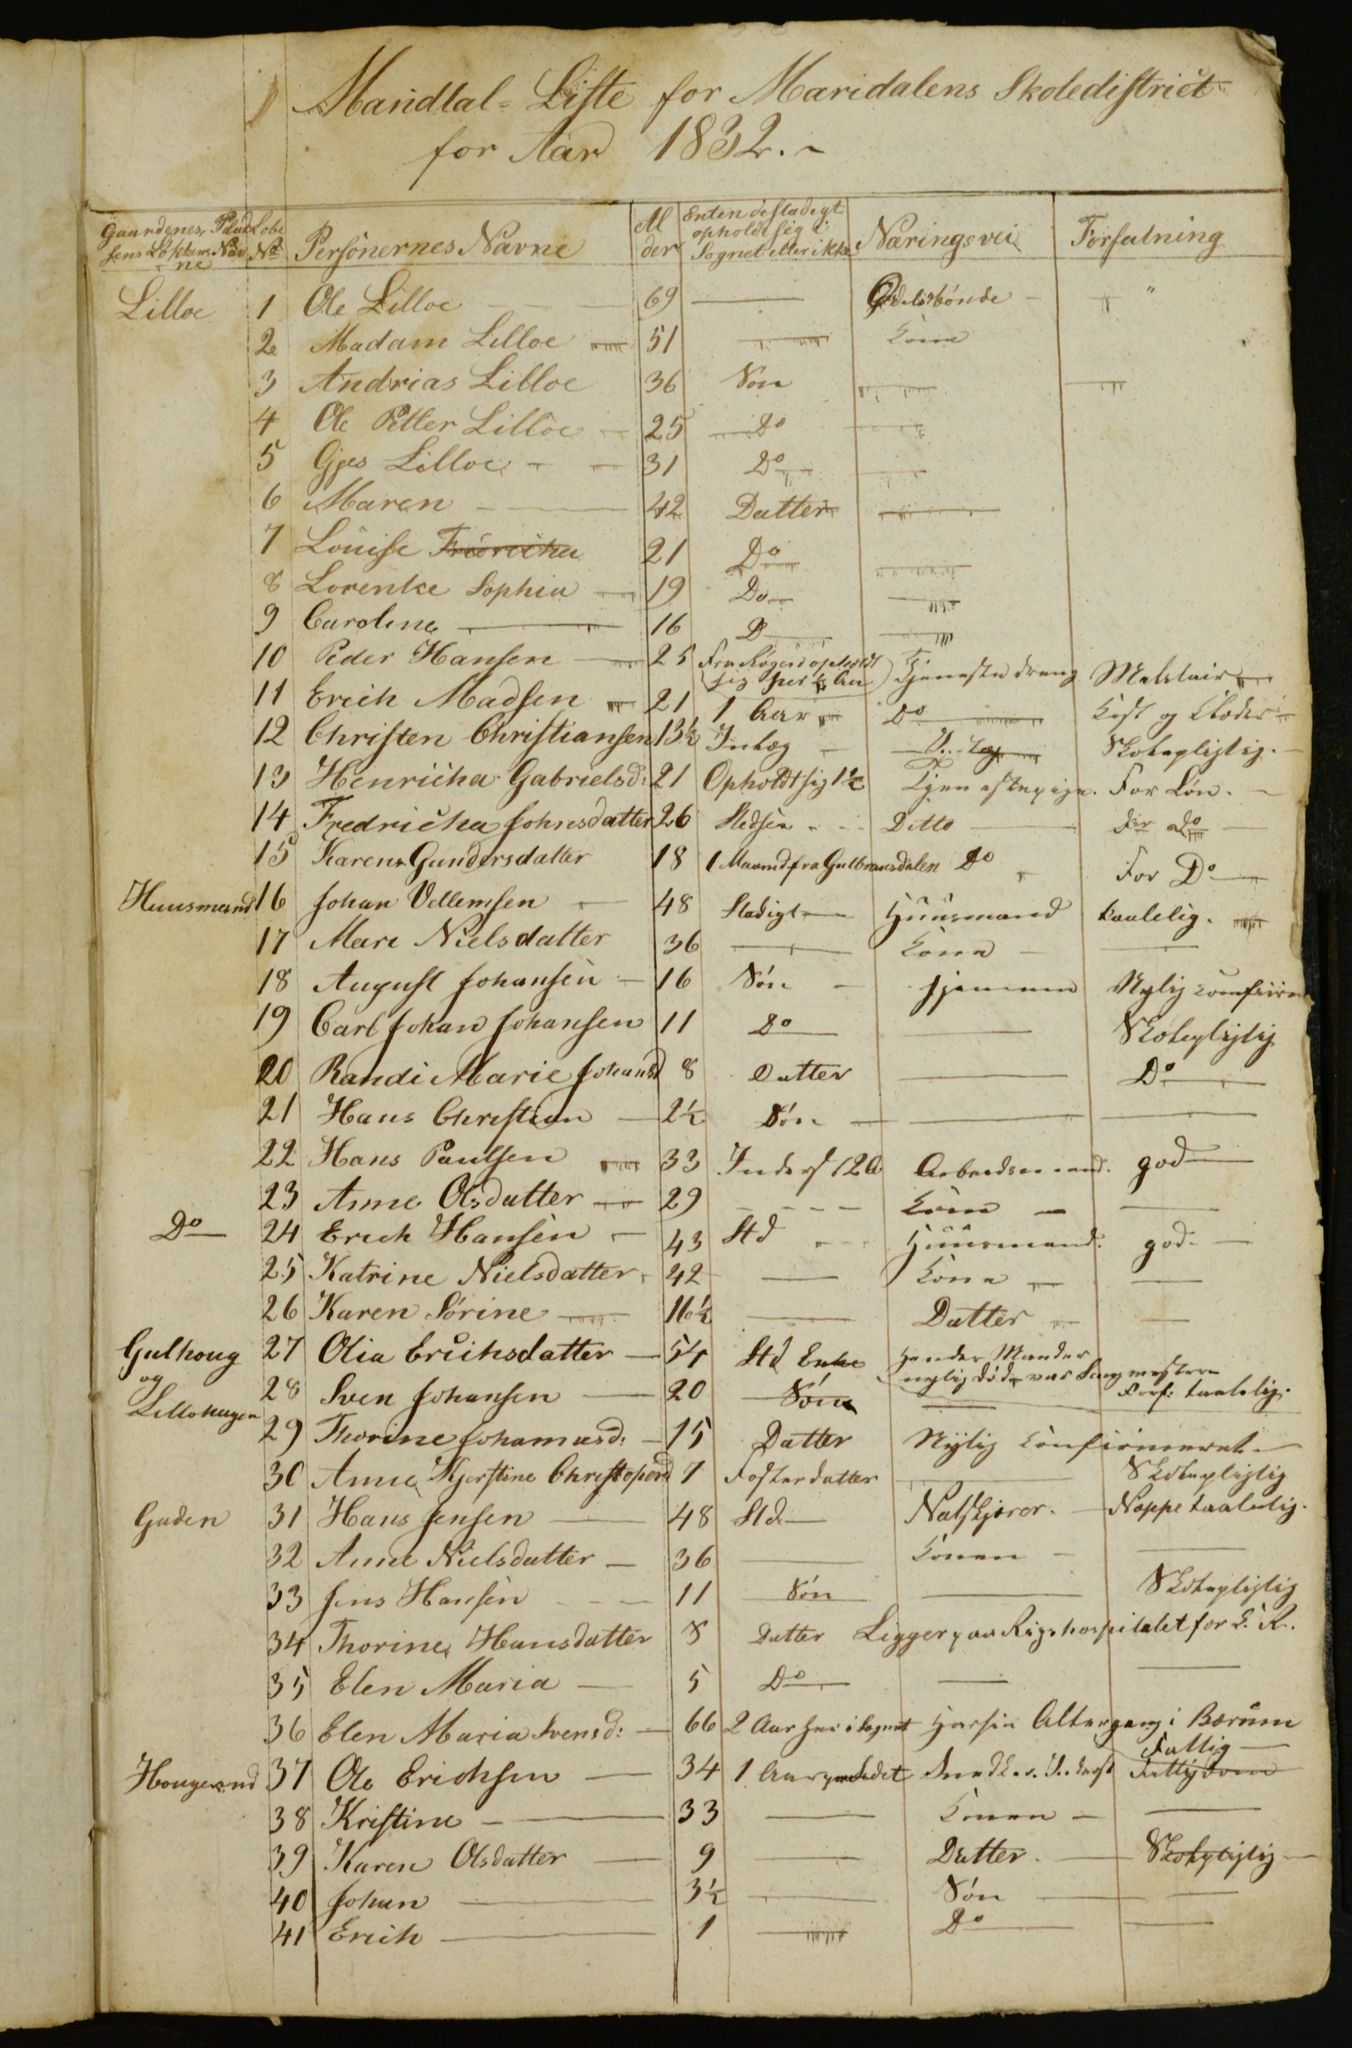 Mandtal-Liste for Maridalens Skoledistrict
for Aar 1832.
Gaardenes, Personernes Navne Al der Enten bestadigt opholdt sig i Sognet eller ikke Næringsvei Forfatning
Lilloe 1 Ole Lilloe 69 — Odelsbonde "
2 Madam Lilloe 51 — Kone
3 Andrias Lilloe 36 Søn
4 Ole Petter Lilloe 25 Do
5 Lilloe 31 Do
6 Maren — 42 Datter
7 Louise 21 Do
8 Lorentse Sophia 19 Do
9 Caroline — 16 D
10 Peder Hansen 25 Tjenestedreng
11 Erich Madsen 21 1 Aar Do Kost og Klæder
12 Christen Christiansen 13½ Skolepligtig.
13 Henricha Gabrielsd: 21 Opholdt sig Tjenestepige. For Løn.
14 Fredricha Johnsdatter 26 Stedse Ditto For do
15 Karen Gundersdatter 18 1 Maaned fra Gulbransdalen Do For Do
Huusmand 16 Johan Vellemsen 48 Stadigt Huusmand taalelig.
17 Mari Nielsdatter 36 — Kone —
18 August Johansen 16 Søn hjemme Nylig
19 Carl Johan Johansen 11 Do — Skolepligtig
20 Randi Marie Johansd 8 Datter — Do
21 Hans Christian 2½ Søn — —
22 Hans Paulsen 33 Inderst Arbeidsmand. god
23 Anne Olsdatter 29 - - - Kone —
Do 24 Erich Hansen 43 Std Huusmand. god.
25 Katrine Nielsdatter 42 — Kone —
26 Karen Sørine 16½ — Datter —
Gulhoug 27 Olia Erichsdatter 54 Std Enke hendes Mand
og nylig død, var
Lillohagen 28 Sven Johansen 20 Søn — Forf: taalelig.
29 Thorine Johannesd: 15 Datter Nylig confirmeret
30 Anne Kjerstine Christopersd 7 Fosterdatter — Skolepligtig
Gaden 31 Hans Jensen 48 Std Neppe taalelig.
32 Anne Nielsdatter 36 — Konen —
33 Jens Hansen 11 Søn — Skolepligtig
34 Thorine Hansdatter 8 Datter Ligger paa Rigshospitalet for
35 Elen Maria 5 Do — —
36 Elen Maria Svensd: 66 2 Aar her i Sognet Har sin Altergang i Bærum
Fattig
37 Ole Erichsen 34 1 Aar Inderst Fattigdom
38 Kristine — 33 — Konen —
39 Karen Olsdatter 9 — Datter. Skolepligtig
40 Johan — 3½ — Søn —
41 Erich — 1 — Do —